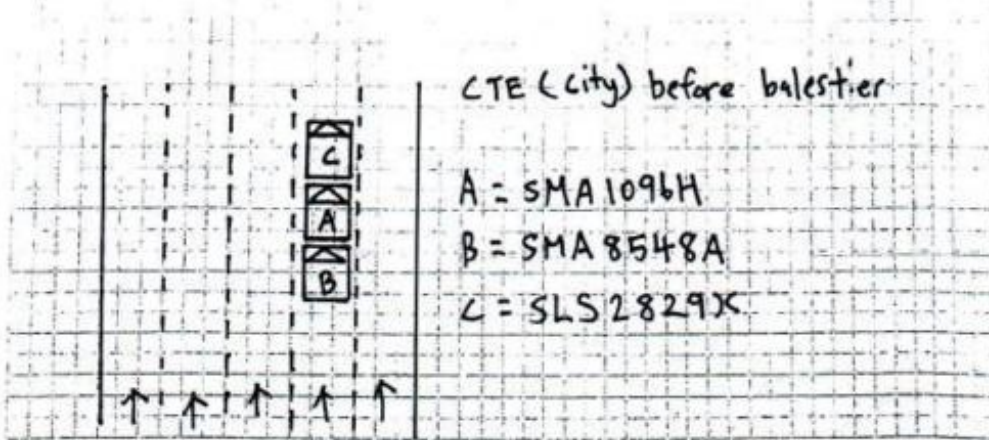 CTE (city) before balestier
C
A = SMA1096H
A
B = SMA8548A
B
C = SLS2829X